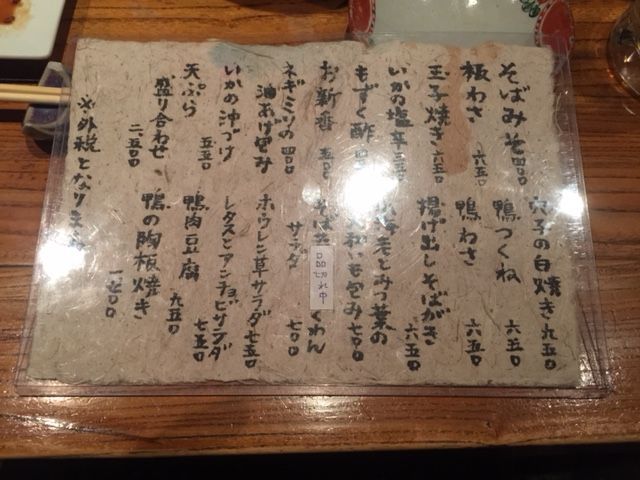 そばみそ 四〇〇
板わさ 六五〇
玉子焼き 六五〇
いかの塩辛
もずく酢
お新香
ネギミソの 四〇〇
油あげ包み
いかの沖づけ 五五〇
天ぷら
盛り合わせ 二、五〇〇
※外税となります
穴子の白焼き 九五〇
鴨つくね 六五〇
鴨わさ 六五〇
揚げ出しそばがき 六五〇
海老とみつ葉の
大和いも包み 七〇〇
品切れ中
サラダ 七〇〇
ホウレン草サラダ 七五〇
レタスとアンチョビサラダ 七五〇
鴨肉豆腐 九五〇
鴨の胸板焼き 一七〇〇